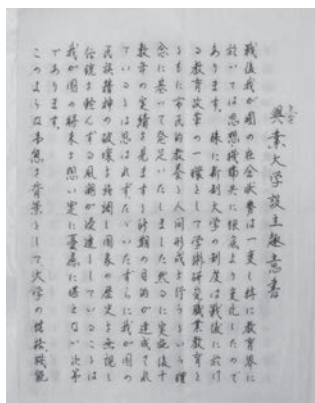 興業大学設立趣意書
戦後我が国の社会状勢は一変し特に教育界に
於いては思想機構共に根底より変化したので
あります。殊に新制大学の制度は戦後に於け
る教育改革の一環として学術研究職業教育と
ともに市民的教養と人間形成を行うという理
念に基いて発足いたしました然るに実施後十
数年の実績を見ますに所期の目的が達成され
ているとは思はれずたゞいたずらに我が国の
民族精神の破壊を誘調し国家の歴史を無視し
伝統を軽んずる風潮が浸透していることは
我が国の将来を想い実に憂慮に堪えない次第
であります。
このような事態を背景として大学の性格機能